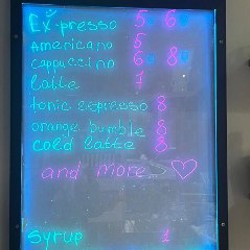 Ex-presso 5 6
Americano 5
cappuccino 6 8
latte 7
tonic espresso 8
orange bumble 8
cold latte 8
and more
syrup 1